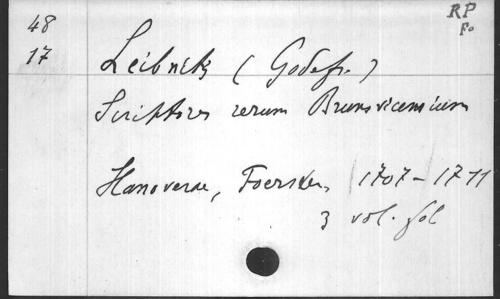 48
17
RP
Fo
Leibnitz (Godefr.)
Scriptores rerum Brunsvicensium
Hanoverae, Foerster, 1707-1711
3 vol. fol